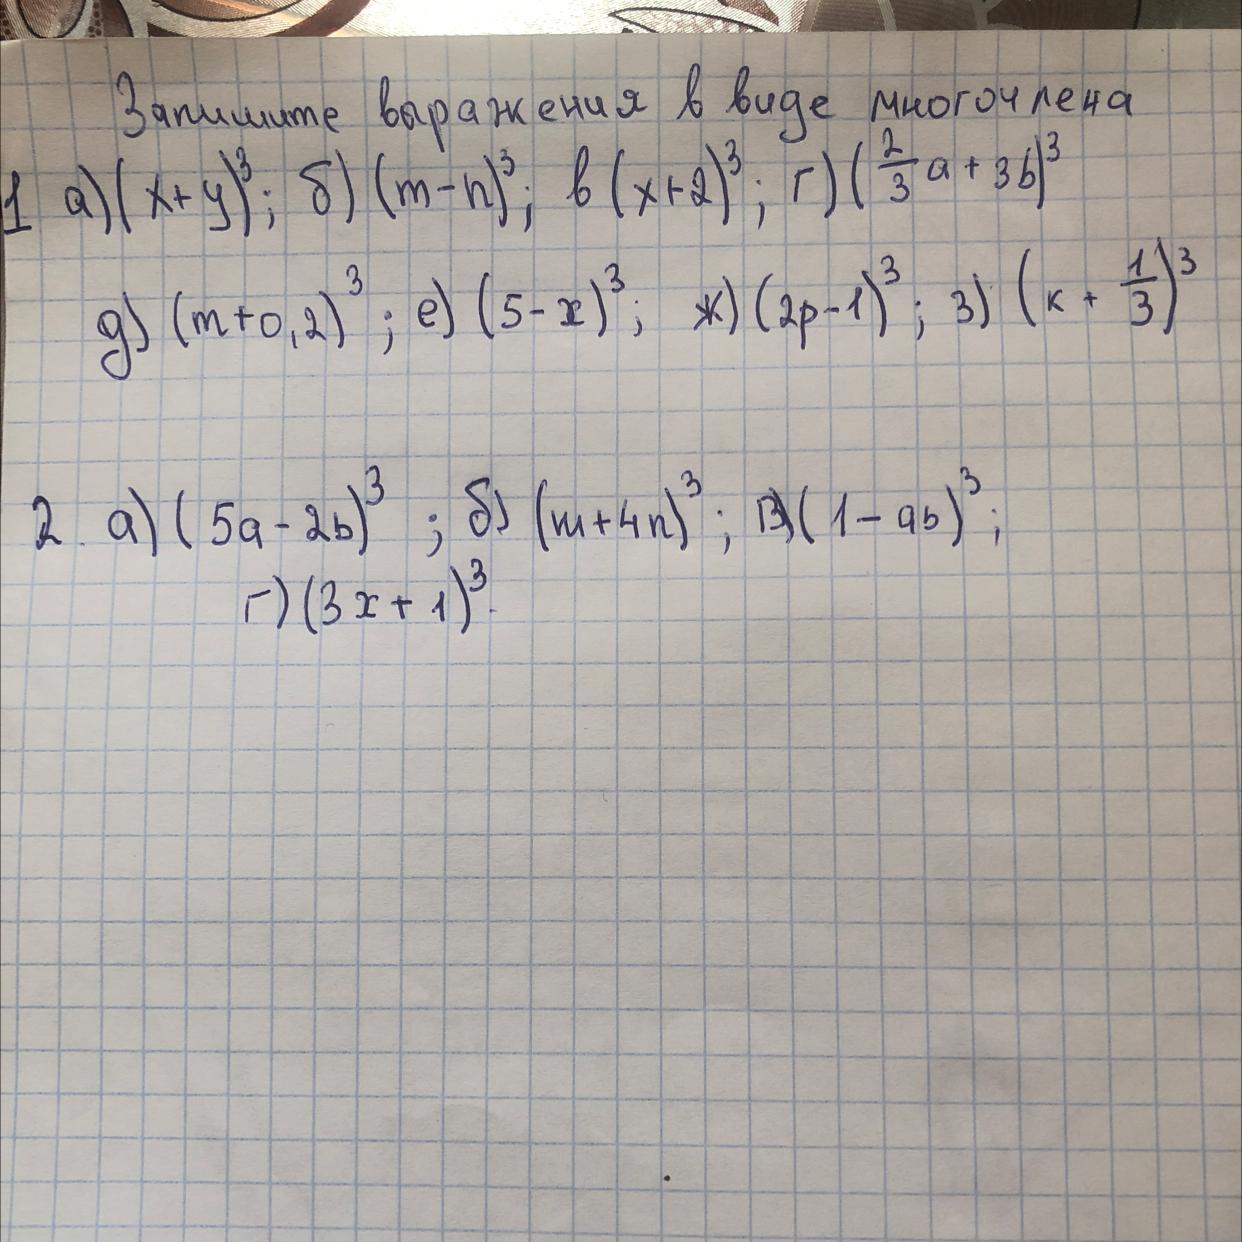 Запишите выражения в виде многочлена
1 а) (x+y)³; б) (m-n)³; в (x+2)³; г) (2/3 a + 3b)³
д) (m+0,2)³; е) (5-x)³; ж) (2p-1)³; з) (к + 1/3)³
2. а) (5a-2b)³; б) (m+4n)³; в) (1-ab)³;
г) (3x+1)³.